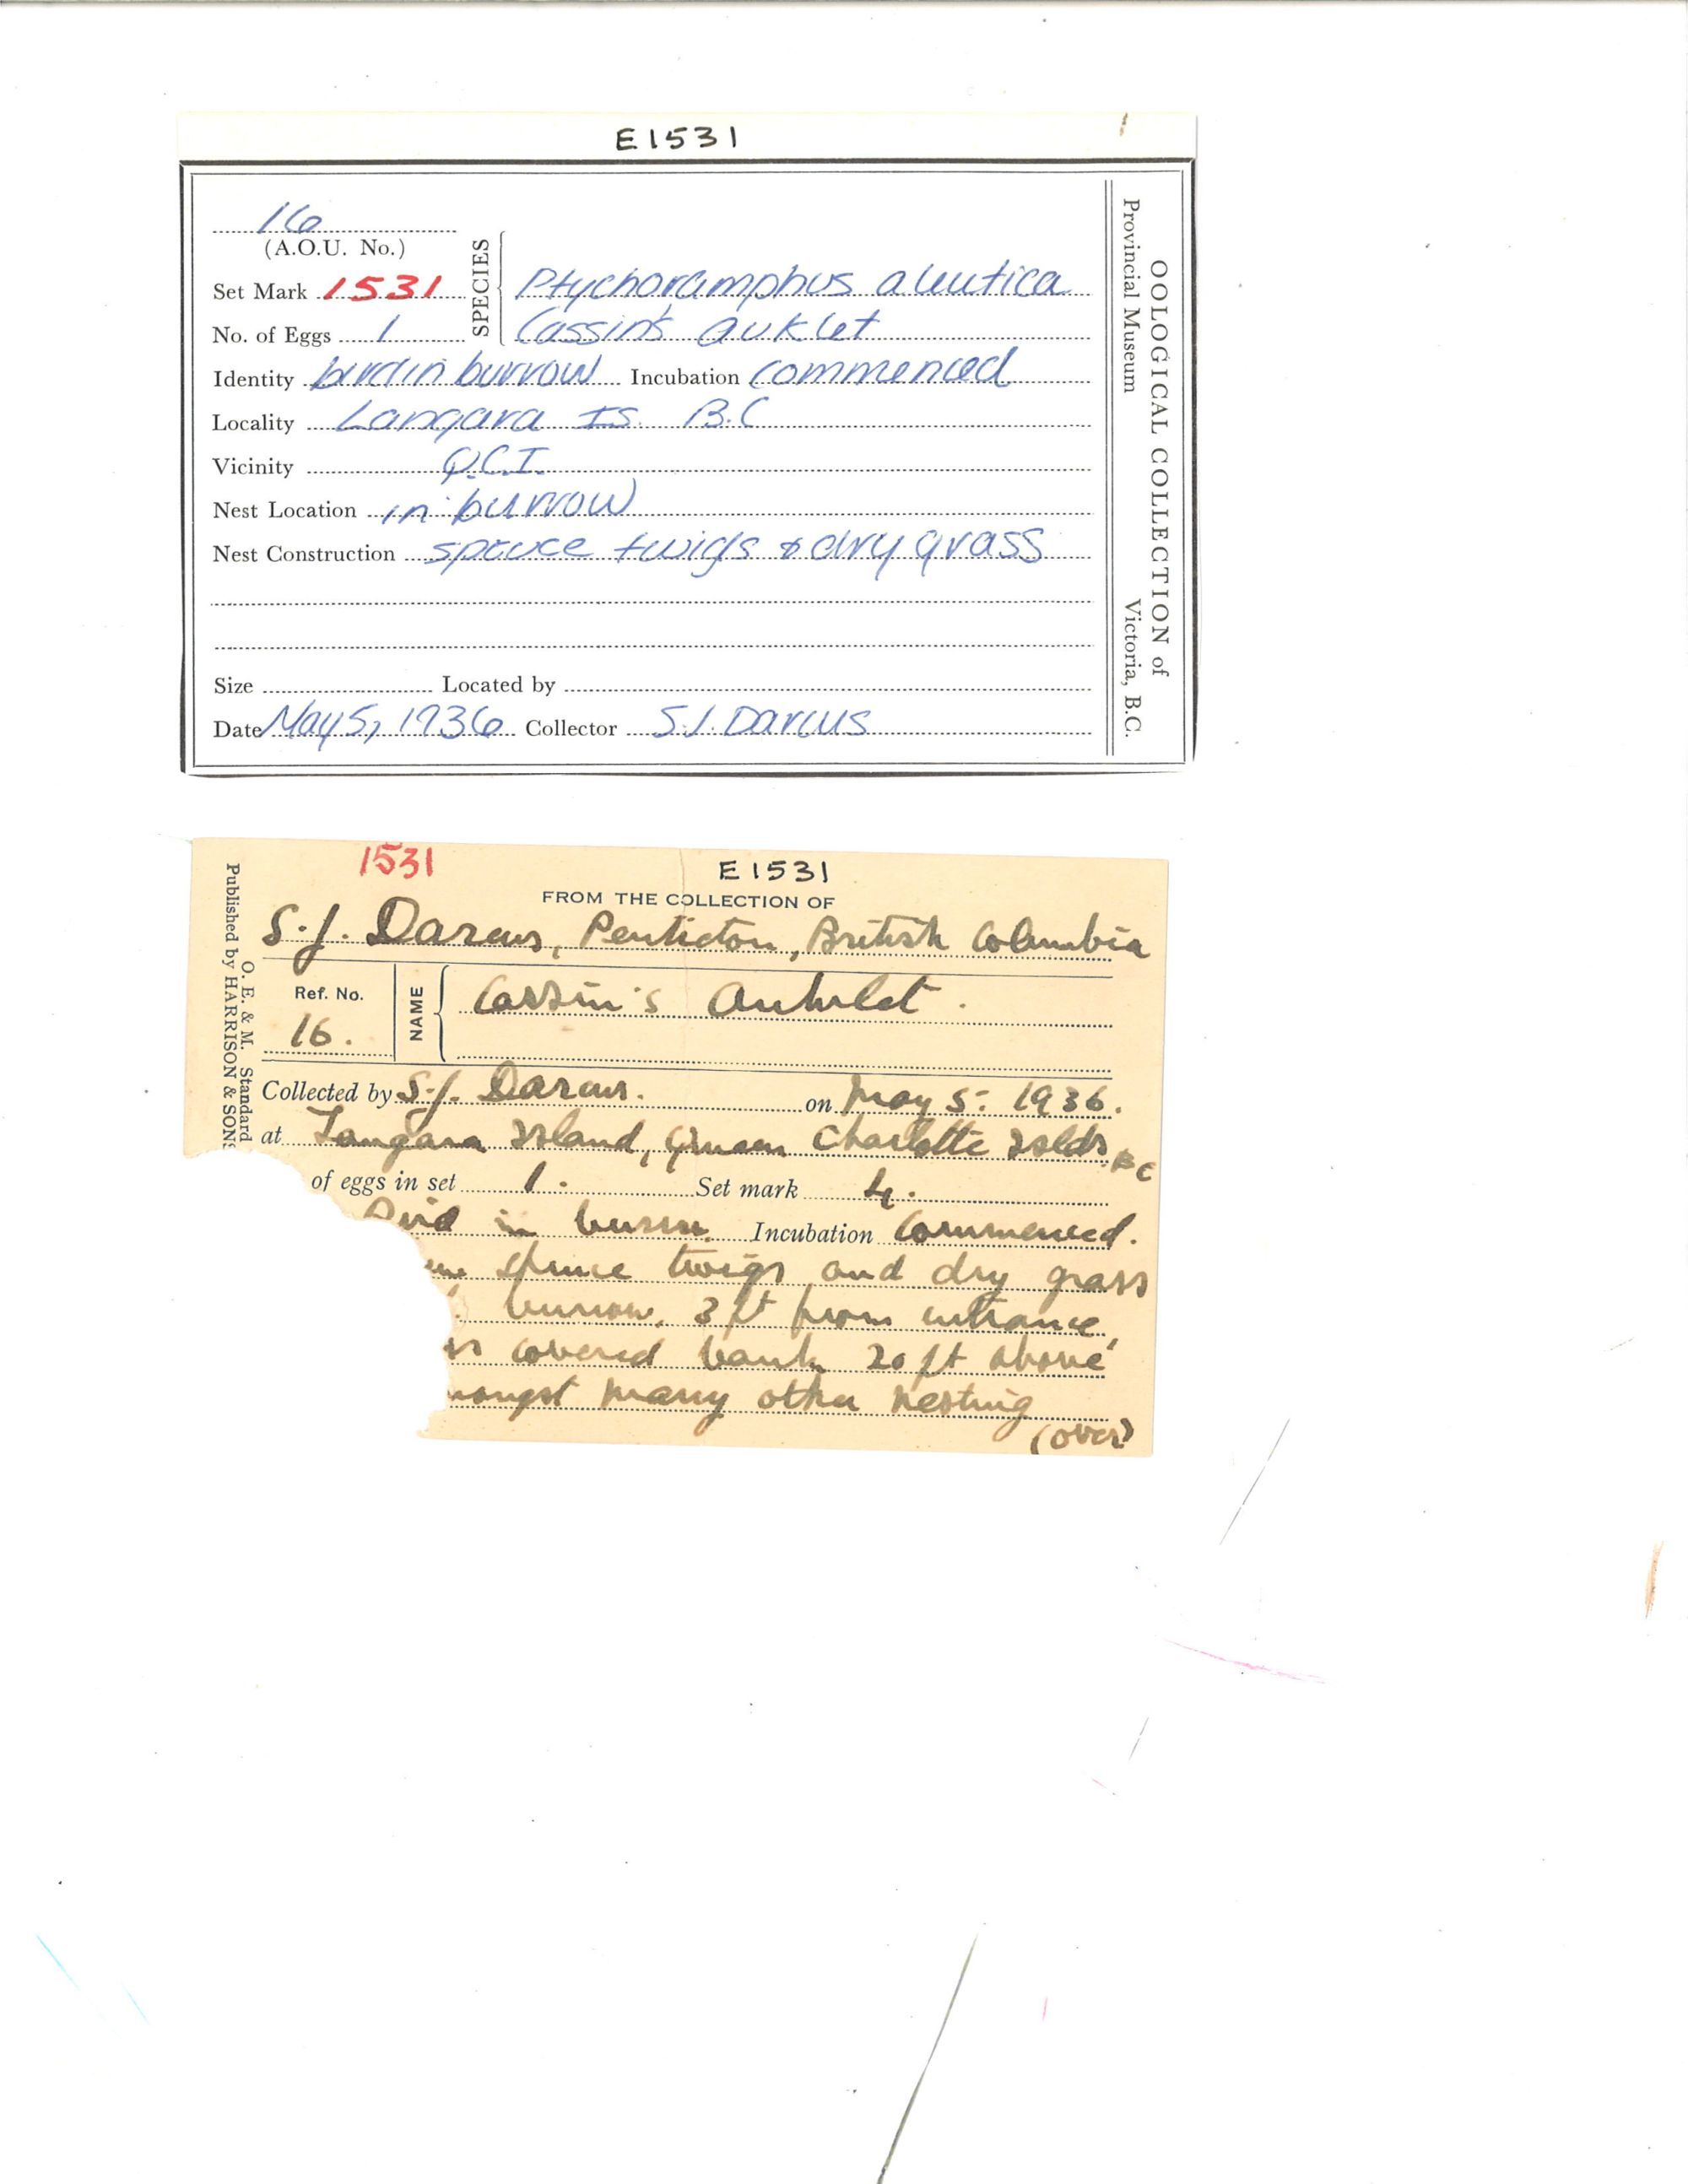 E1531
16
(A.O.U. No.)
Set Mark 1531
SPECIES
Ptychoramphus aleutica
No. of Eggs 1
Cassin's auklet
Identity bird in burrow Incubation commenced
Locality Langara Is. B.C
Vicinity Q.C.I.
Nest Location in burrow
Nest Construction spruce twigs & dry grass
Size Located by
Date May 5, 1936 Collector S.J. Darcus
OOLOGICAL COLLECTION of
Provincial Museum Victoria, B.C.
1531 E1531
FROM THE COLLECTION OF
S.J. Darcus, Penticton, British Columbia
Ref. No.
16.
NAME
Cassin's Auklet.
Collected by S.J. Darcus. on May 5. 1936.
at Langara Island, Queen Charlotte Islds. BC
of eggs in set 1. Set mark 4.
Bird in burrow. Incubation Commenced.
spruce twigs and dry grass
burrow. 3 ft from entrance,
covered bank 20 ft above
mongst many other nesting
(over)
O. E. & M. Standard
Published by HARRISON & SONS